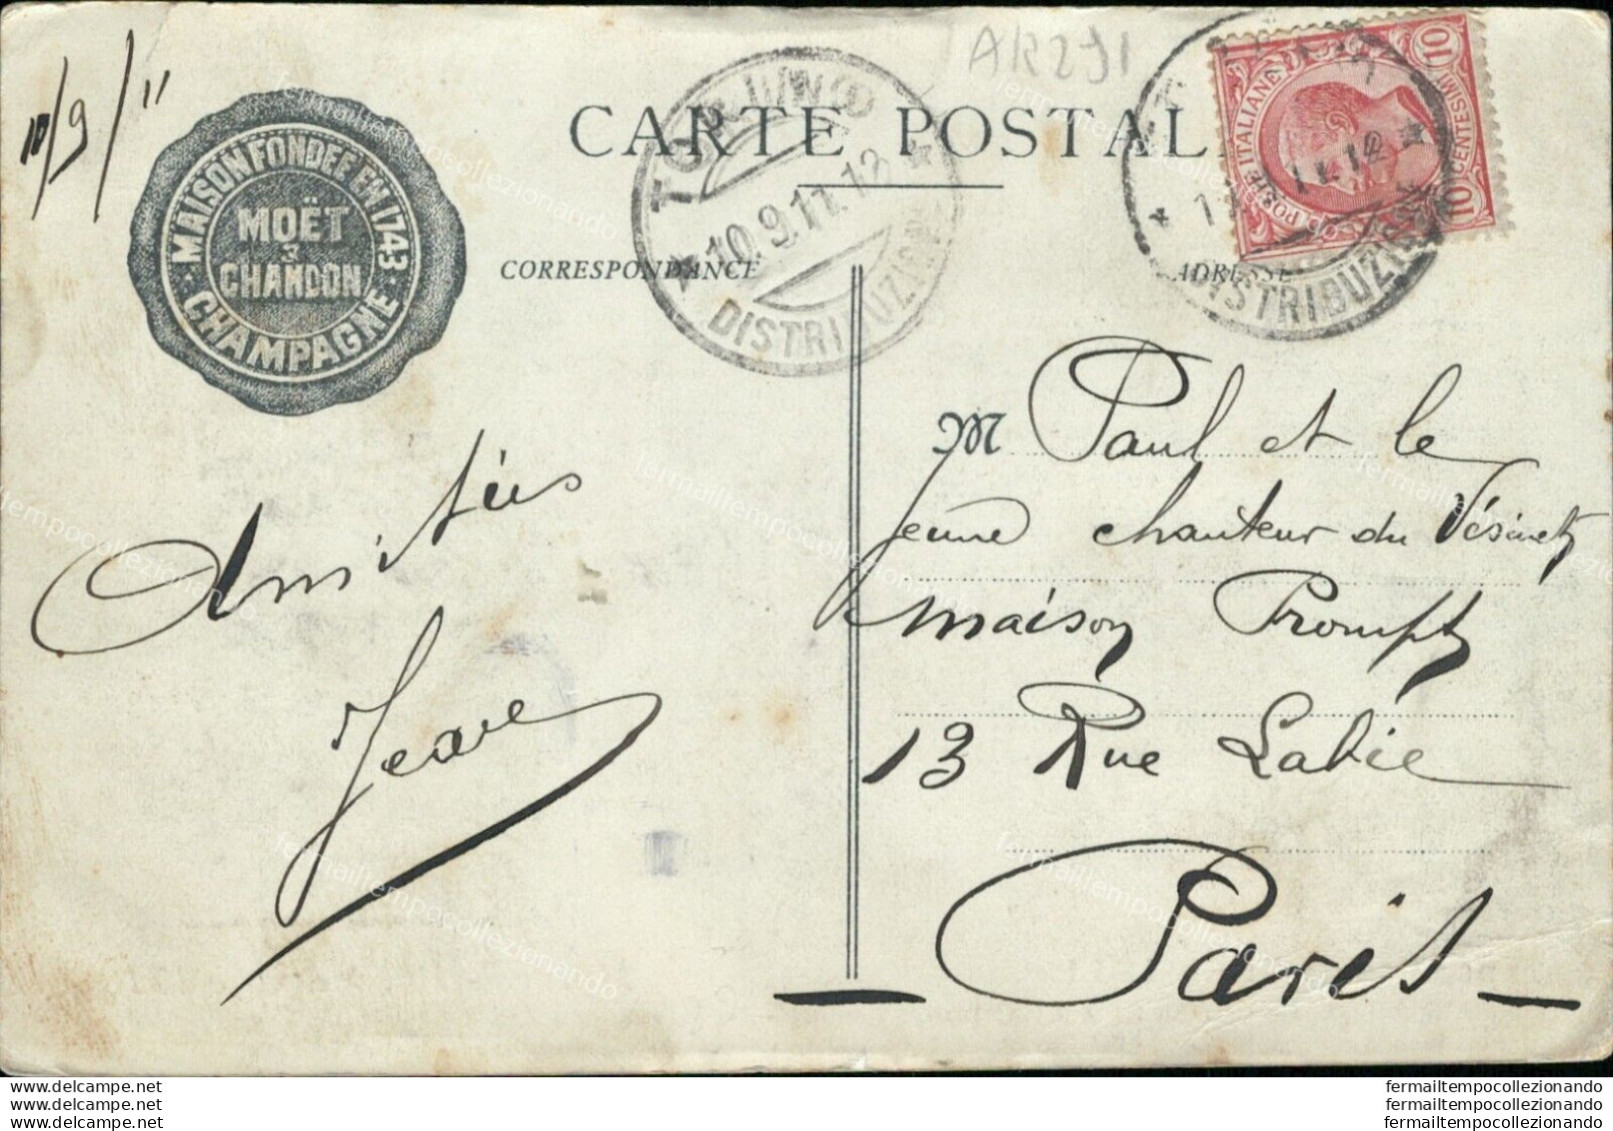 AR291
10/9/11
CARTE POSTALE
MAISON FONDÉE EN 1743
MOËT
&
CHANDON
CHAMPAGNE
TORINO
10.9.11.12
DISTRIBUZIONE
DISTRIBUZIONE
POSTE ITALIANE
10 CENTESIMI 10
CORRESPONDANCE
ADRESSE
Amitiés
Jean
M Paul et le
jeune chanteur du Vésinet
maison Prompt
13 Rue Labie
Paris
www.delcampe.net
www.delcampe.net
www.delcampe.net
fermailtempocollezionando
fermailtempocollezionando
fermailtempocollezionando